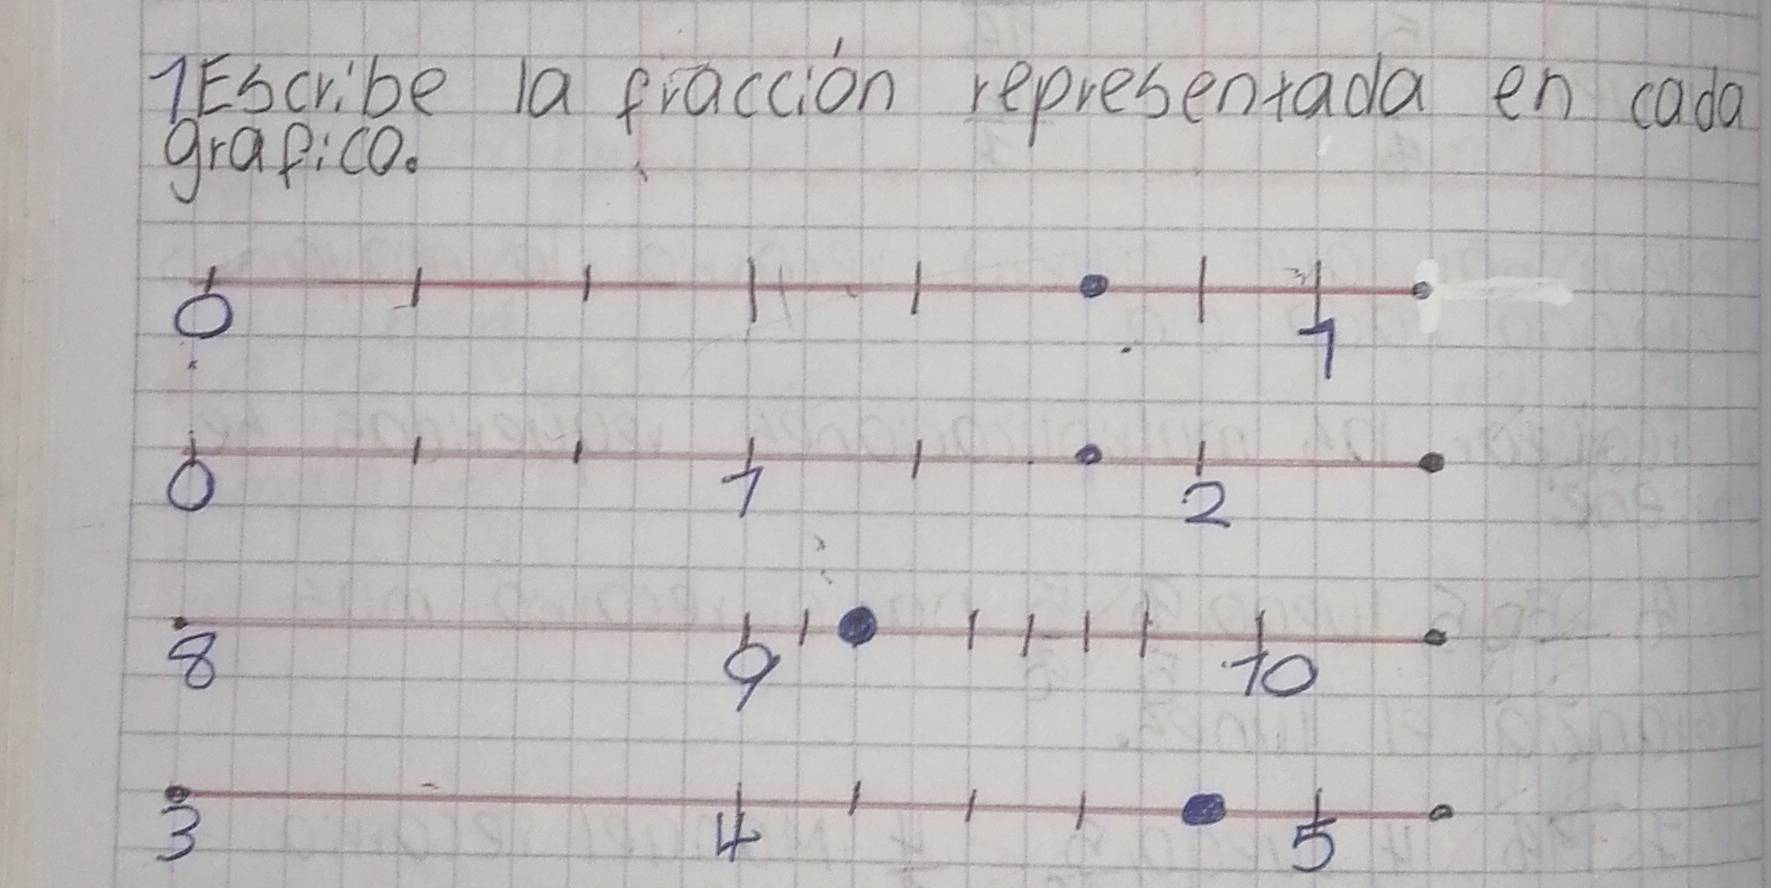 1Escribe la fracción representada en cada
grafico.
0 1
0 1 2
8 9 10
3 4 5